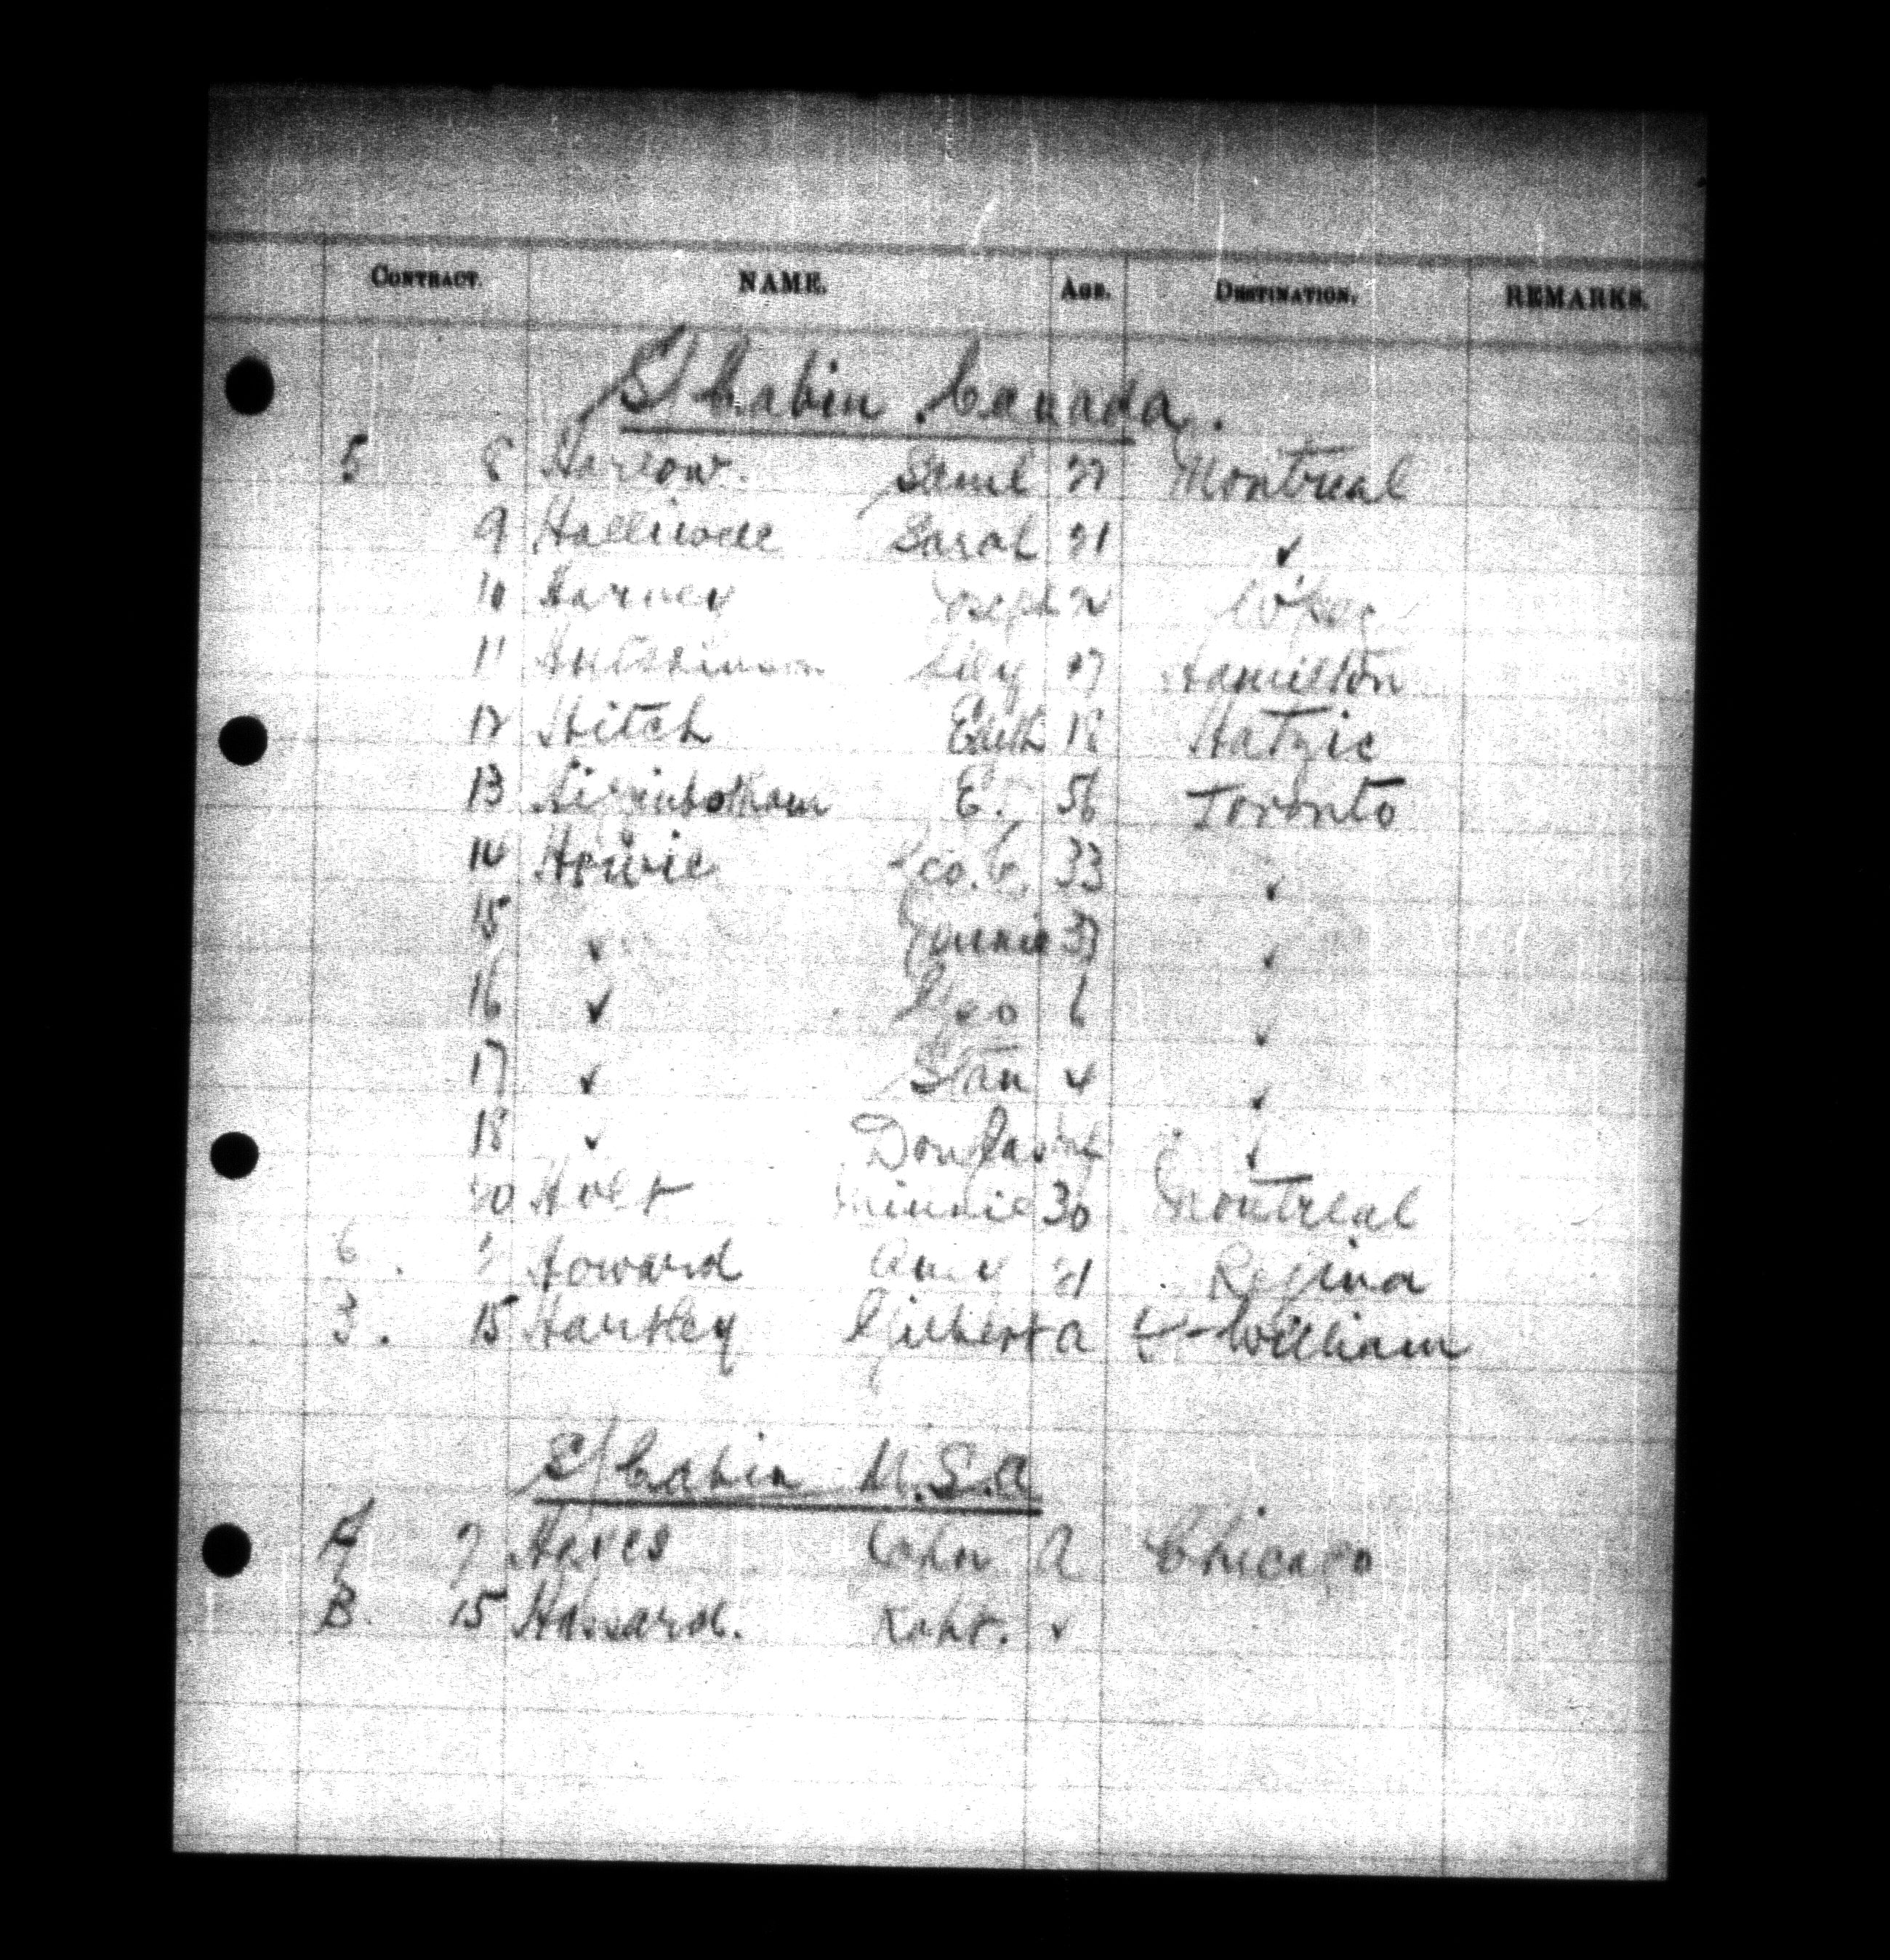 CONTRACT. NAME. AGE. DESTINATION. REMARKS.
S/ Cabin Canada.
5 8 Harlow. Saml Montreal
9 Halliwell Sarah 21 ✓
10 Harvey Joseph W'peg
11 Hutchinson Lily Hamilton
12 Hitch Edith 18 Hatzic
13 Higginbotham E. 56 Toronto
14 Howie Geo. C. 33 ✓
15 ✓ 37 ✓
16 ✓ Geo 6 ✓
17 ✓ Stan 4 ✓
18 ✓ Douglas Inf ✓
20 Holt Minnie 30 Montreal
6. Howard Amy 21 Regina
3. 15 Hartley Gilbert A Ft William
S/ Cabin U.S.A
A 7 Hayes John A Chicago
B. 15 Hassard. Robt. ✓